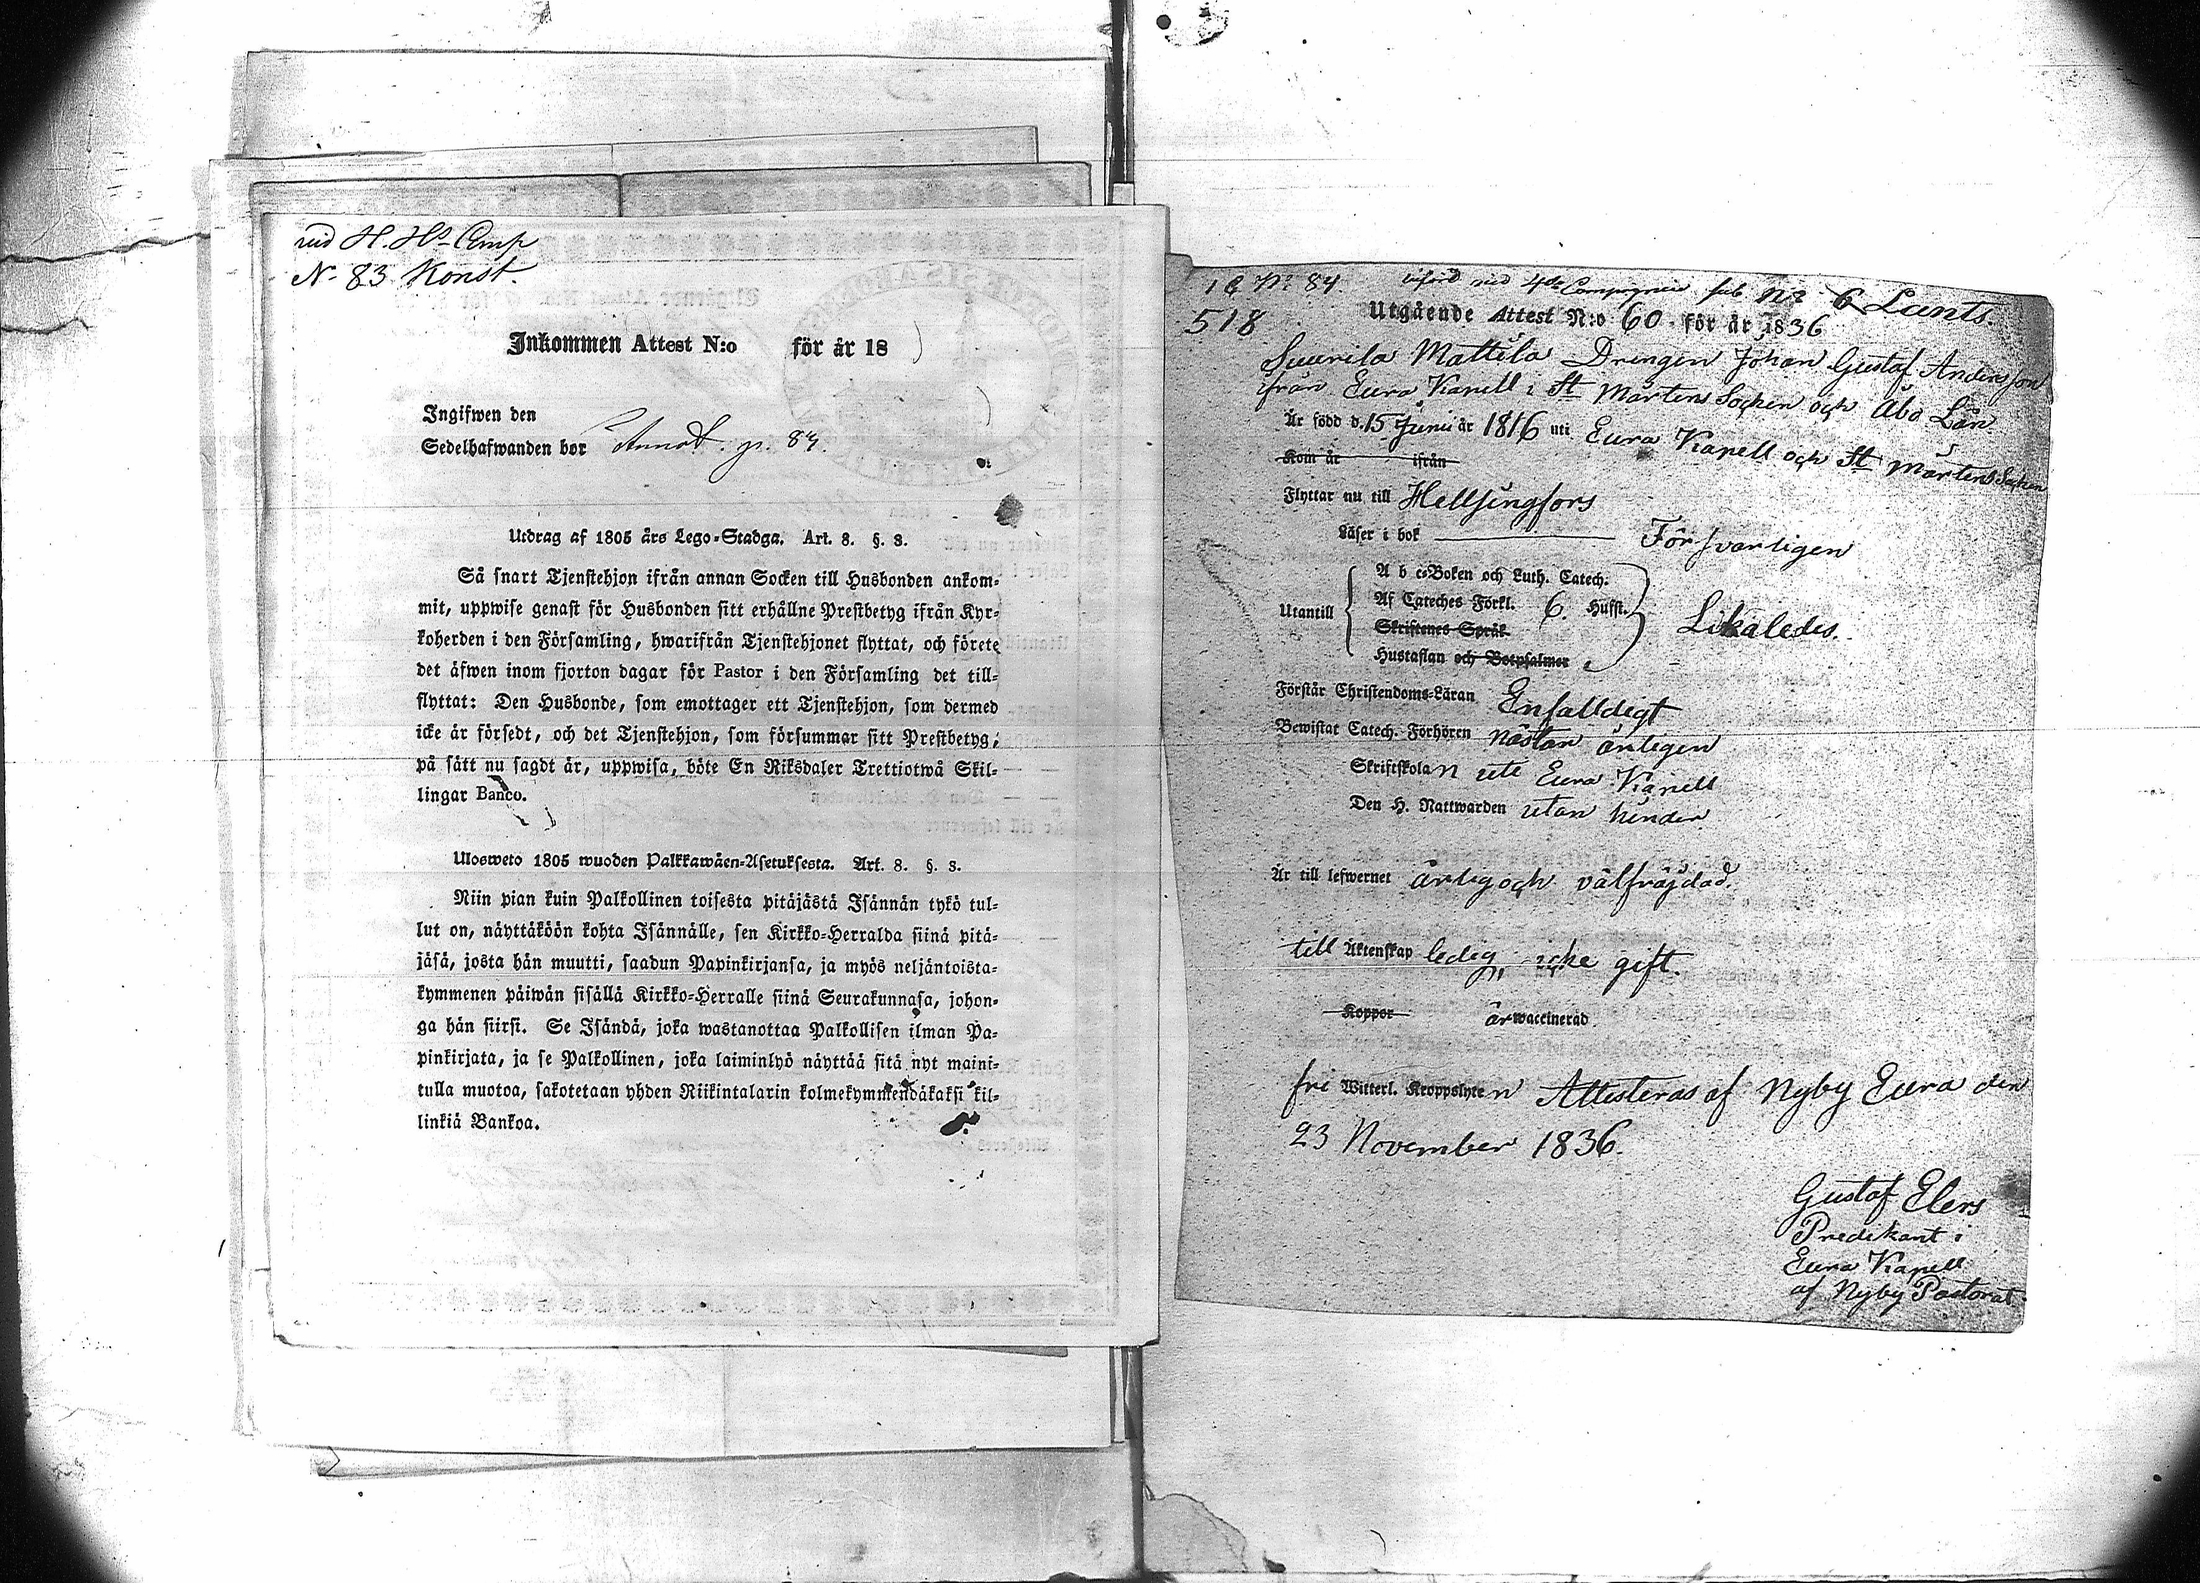 vid H. Hs Comp
N. 83 Konst.
Inkommen Attest N:o för år 18
Ingifwen den
Sedelhafwanden bor Annot. p. 84.
Utdrag af 1805 års Lego-Stadga. Art. 8. §. 3.
Så snart Tjenstehjon ifrån annan Socken till Husbonden ankom-
mit, uppwise genast för Husbonden sitt erhållne Prestbetyg ifrån Kyr-
koherden i den Församling, hwarifrån Tjenstehjonet flyttat, och förete
det äfwen inom fjorton dagar för Pastor i den Församling det till-
flyttat: Den Husbonde, som emottager ett Tjenstehjon, som dermed
icke är försedt, och det Tjenstehjon, som försummar sitt Prestbetyg,
på sätt nu sagdt är, uppwisa, böte En Riksdaler Trettiotwå Skil-
lingar Banco.
Ulosweto 1805 wuoden Palkkawäen-Asetuksesta. Art. 8. §. 3.
Niin pian kuin Palkollinen toisesta pitäjästä Isännän tykö tul-
lut on, näyttäköön kohta Isännälle, sen Kirkko-Herralda siinä pitä-
jäsä, josta hän muutti, saadun Papinkirjansa, ja myös neljäntoista-
kymmenen päiwän sisällä Kirkko-Herralle siinä Seurakunnasa, johon-
ga hän siirsi. Se Isändä, joka wastanottaa Palkollisen ilman Pa-
pinkirjata, ja se Palkollinen, joka laiminlyö näyttää sitä nyt maini-
tulla muotoa, sakotetaan yhden Riikintalarin kolmekymmendäkaksi kil-
linkiä Bankoa.
1 C N: 84 vid 4de Compagnie sub No 6 Lunts.
518 Utgående Attest N:o 60. för år 1836
Suurila Mattila Drengen Johan Gustaf Andersson
ifrån Eura Kapell i St Mårtens Socken och Åbo Län
Är född d. 15 Junii år 1816 uti Eura Kapell och St Mårtens Socken
Kom år ifrån
Flyttar nu till Hellsingfors
Läser i bok Försvarligen
A b c-Boken och Luth. Catech.
Utantill Af Cateches Förkl. 6. Hufst. Likaledes.
Skriftenes Språk
Hustaflan och Botpsalmer
Förstår Christendoms-Läran Enfalldigt
Bewistat Catech. Förhören nästan årligen
Skriftskolan uti Eura Kapell
Den H. Nattwarden utan hinder
Är till lefwernet ärlig och välfräjdad.
till Äktenskap ledig, icke gift.
Koppor är waccinerad
fri Witterl. Kroppslyten Attesteras af Nyby Eura den
23 November 1836.
Gustaf Elers
Predikant i
Eura Kapell
af Nyby Pastorat